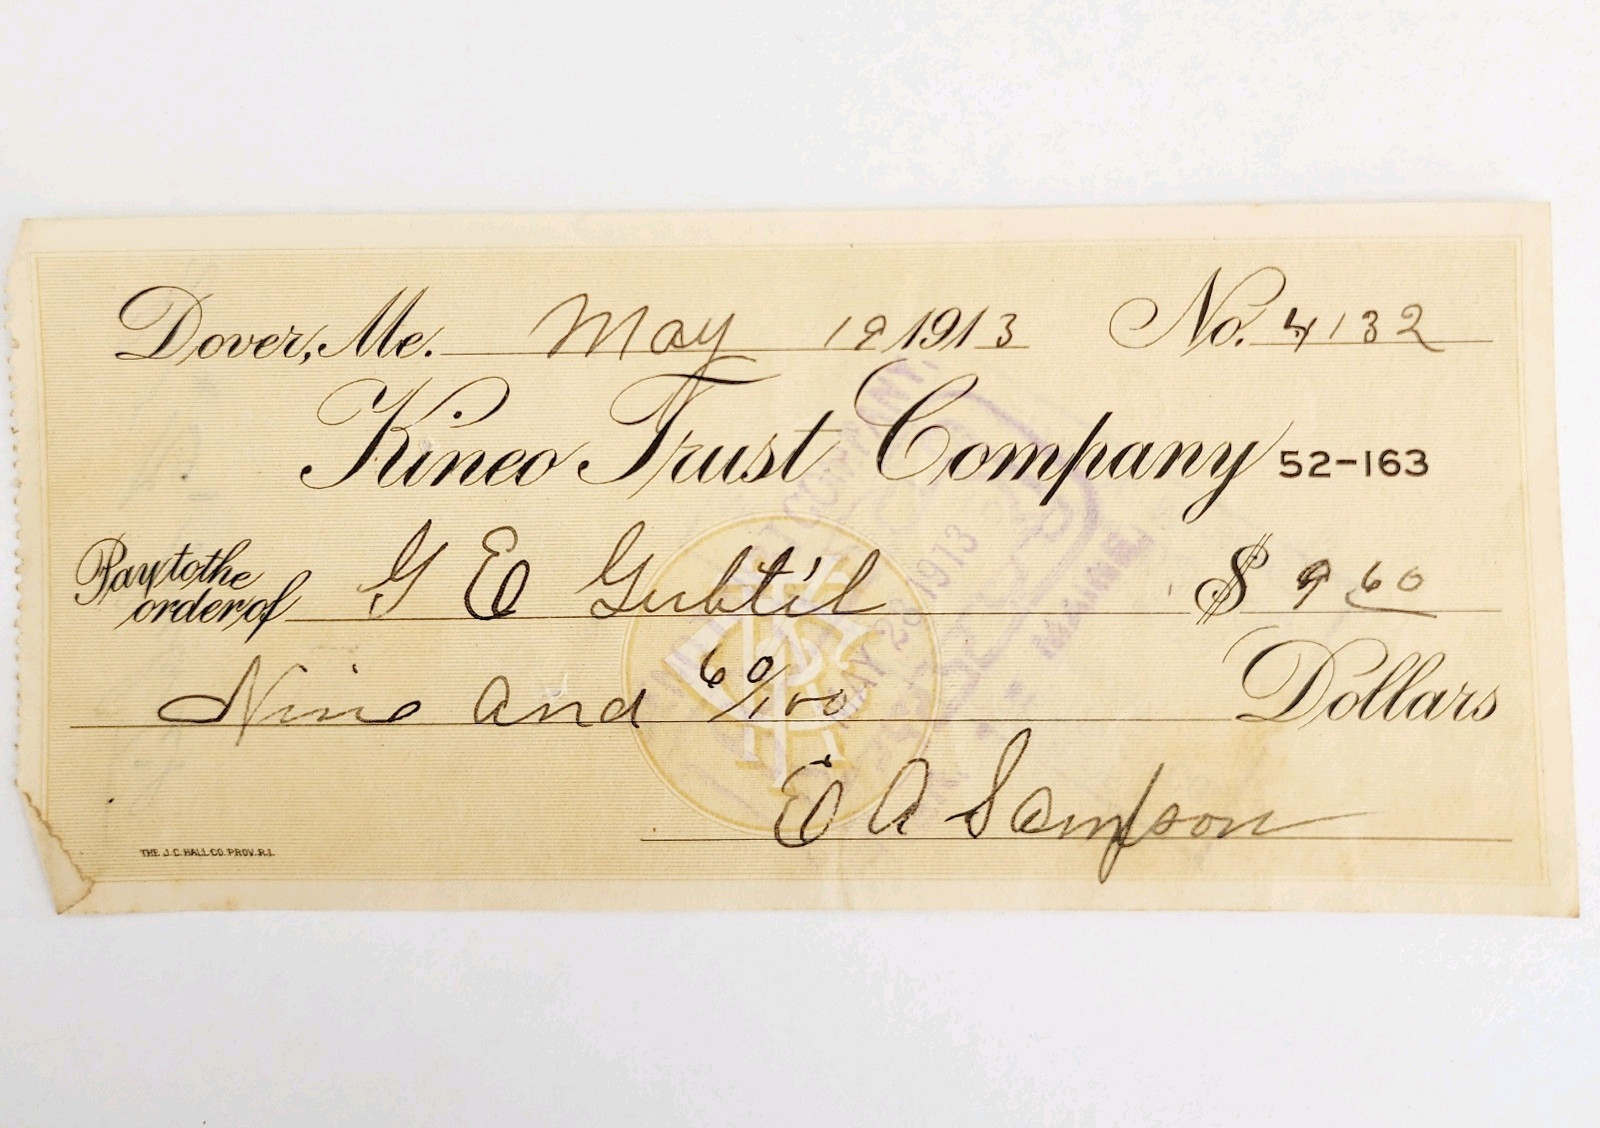 Dover, Me. May 19 1913 No. 4132
Kineo Trust Company 52-163
Pay to the order of G E Gubtil $ 9 60
Nine and 60/100 Dollars
E A Sampson
THE J.C. HALL CO. PROV. R.I.
COMPANY
MAY 1913
MAINE